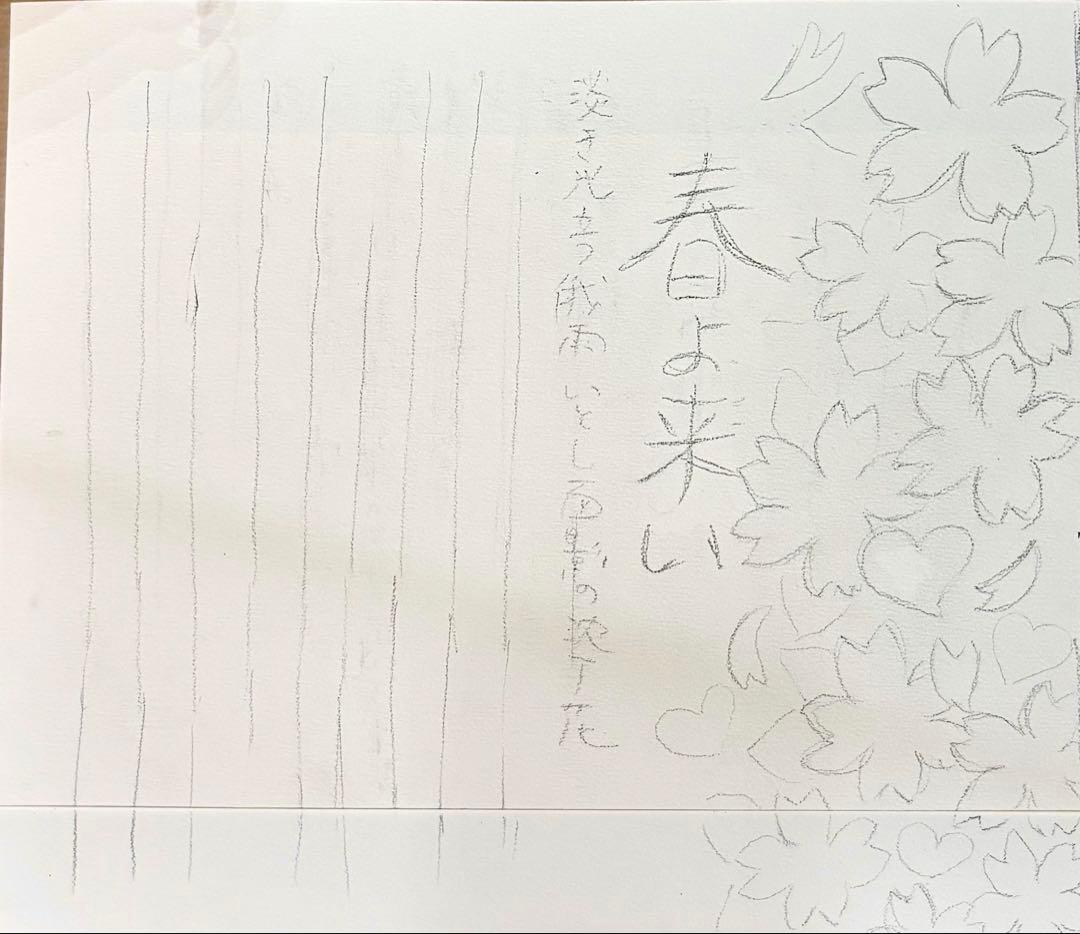 春よ来い
淡き光立つ俄雨 いとし面影の沈丁花